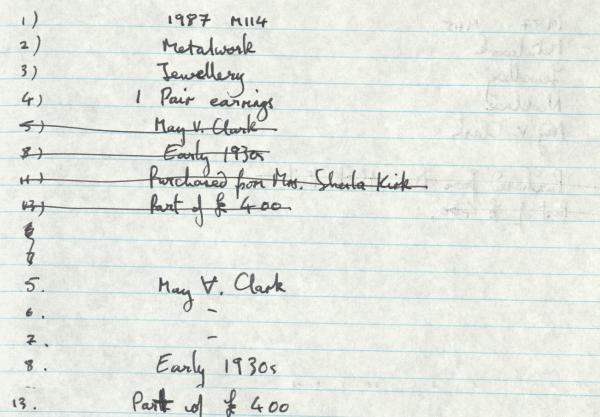 1) 1987 M114
2) Metalwork
3) Jewellery
4) 1 Pair earrings
5) May V. Clark
8) Early 1930s
11) Purchased from Mrs. Sheila Kirk
13) Part of £400
5. May V. Clark
6. -
7. -
8. Early 1930s
13. Part of £400